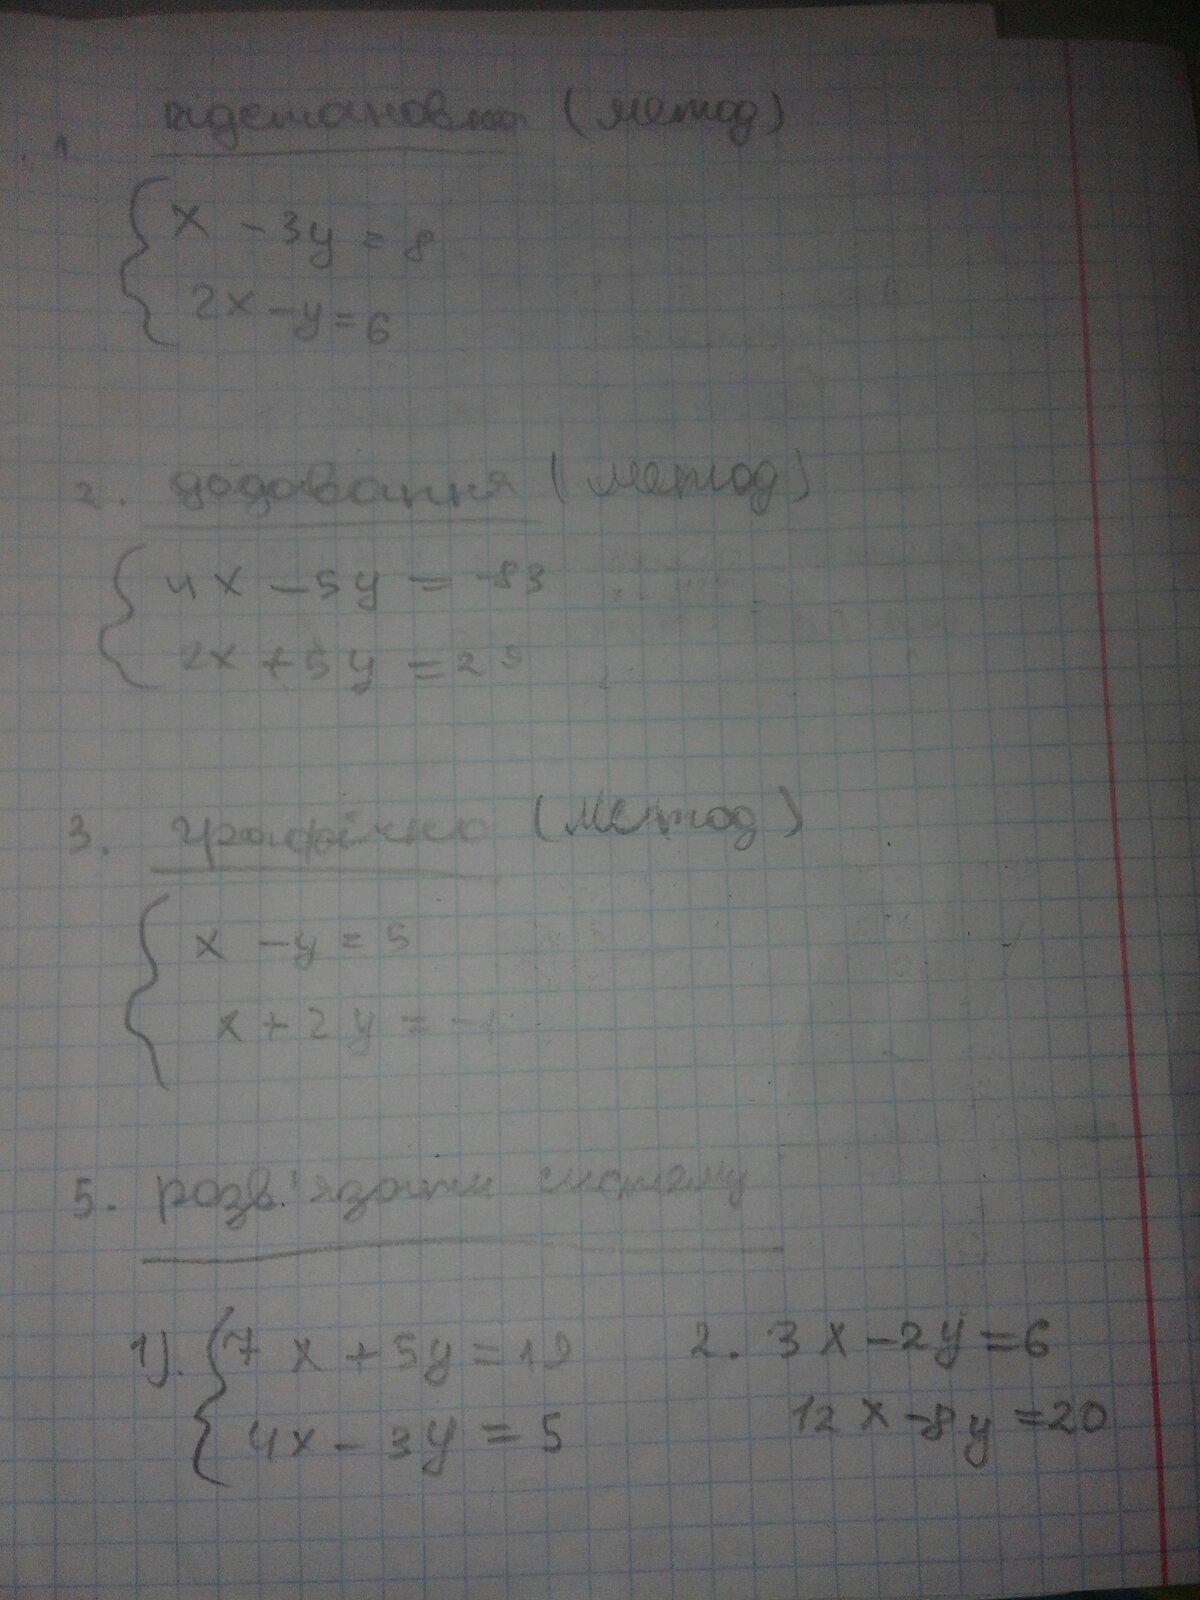 1. підстановка (метод)
x - 3y = 8
2x - y = 6
2. додавання (метод)
4x - 5y = -83
2x + 5y = 29
3. графічно (метод)
x - y = 5
x + 2y = -1
5. розв'язати систему
1). 7x + 5y = 19 2. 3x - 2y = 6
4x - 3y = 5 12x - 8y = 20